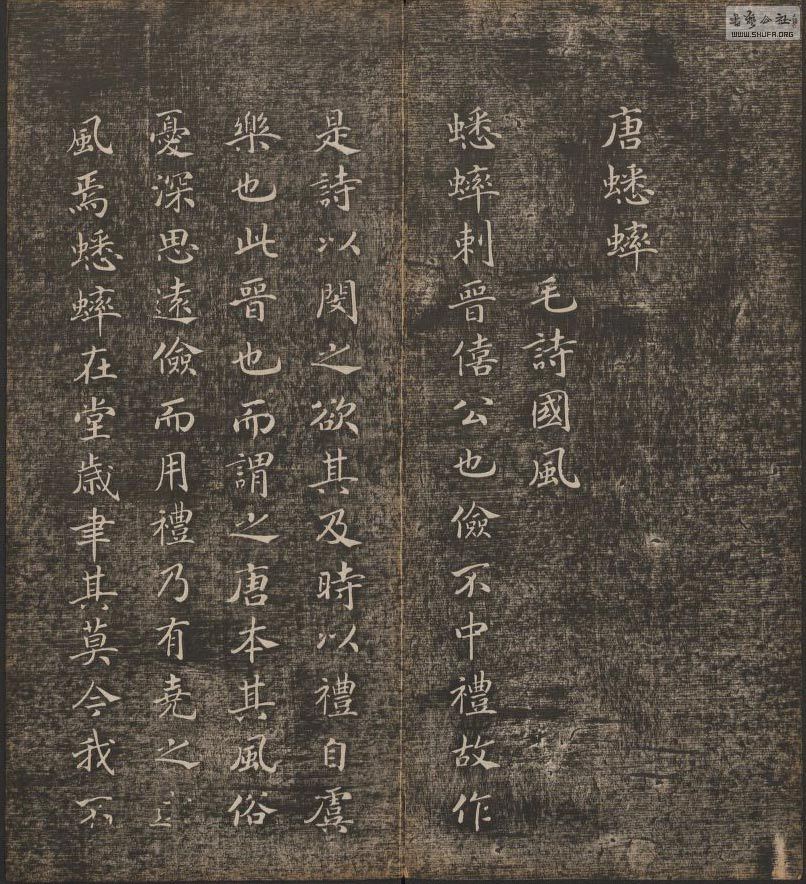 唐蟋蟀
毛詩國風
蟋蟀刺晉僖公也儉不中禮故作
是詩以閔之欲其及時以禮自虞
樂也此晉也而謂之唐本其風俗
憂深思遠儉而用禮乃有堯之
風焉蟋蟀在堂歲聿其莫今我不
WWW.SHUFA.ORG